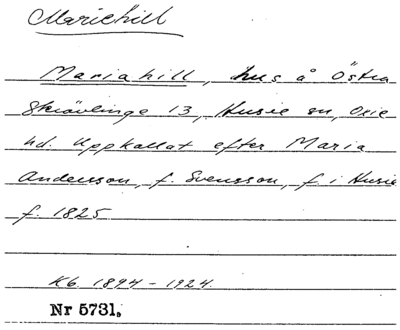 Mariehill
Mariahill, hus å Östra
Skrävlinge 13, Husie sn, Oxie
hd. Uppkallat efter Maria
Andersson, f. Svensson, f. i Husie
f. 1825
Kb 1894-1924.
Nr 5731.